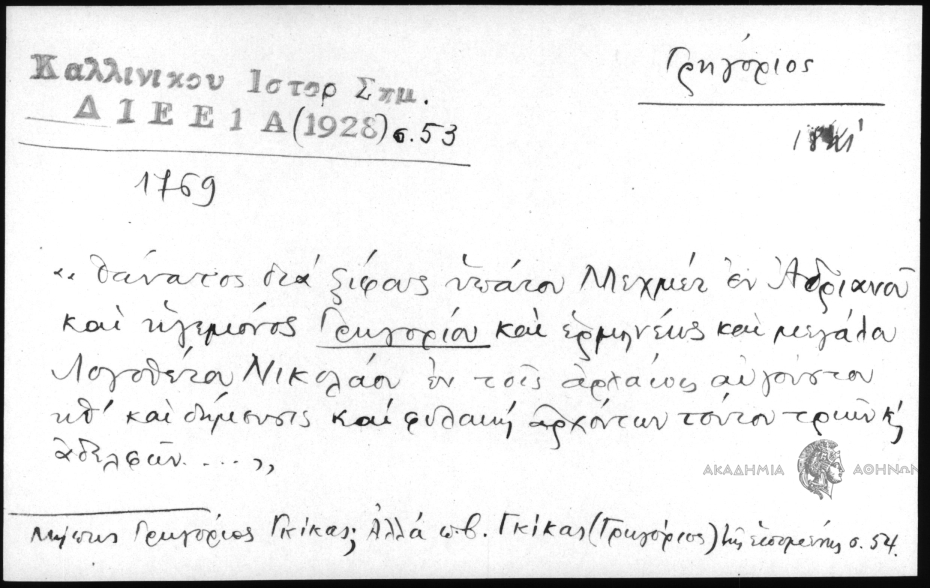 Γρηγόριος
Καλλινικου Ιστορ Σημ.
ΔΙΕΕ 1 Α (1928) σ. 53
1769
“ θάνατος διά ξίφους ὑπάτου Μεχμέτ ἐν Ἀδριανοῦ
καὶ ἡγεμόνος Γρηγορίου καὶ ἑρμηνέως καὶ μεγάλου
Λογοθέτου Νικολάου ἐν τοῖς αὐγούστου
κθ' καὶ δήμευσις καὶ φυλακή ἀρχόντων τούτου τριῶν κ'
ἀδελφῶν . . . . „
ΑΚΑΔΗΜΙΑ ΑΘΗΝΩΝ
Μήπως Γρηγόριος Γκίκας; Ἀλλά π.β. Γκίκας (Γρηγόριος) τῆς ἑπομένης σ. 54.